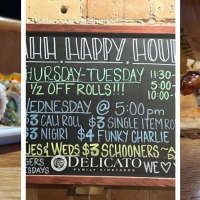 HH HAPPY HOU
HURSDAY-TUESDAY 11:30-
½ OFF ROLLS!!! 5:00-
10:00-
EDNESDAY @ 5:00pm
$3 CALI ROLL $3 SINGLE ITEM RO
$3 NIGIRI $4 FUNKY CHARLIE
UES & WEDS $3 SCHOONERS
GERS DELICATO WE ♡
SDAYS FAMILY VINEYARDS